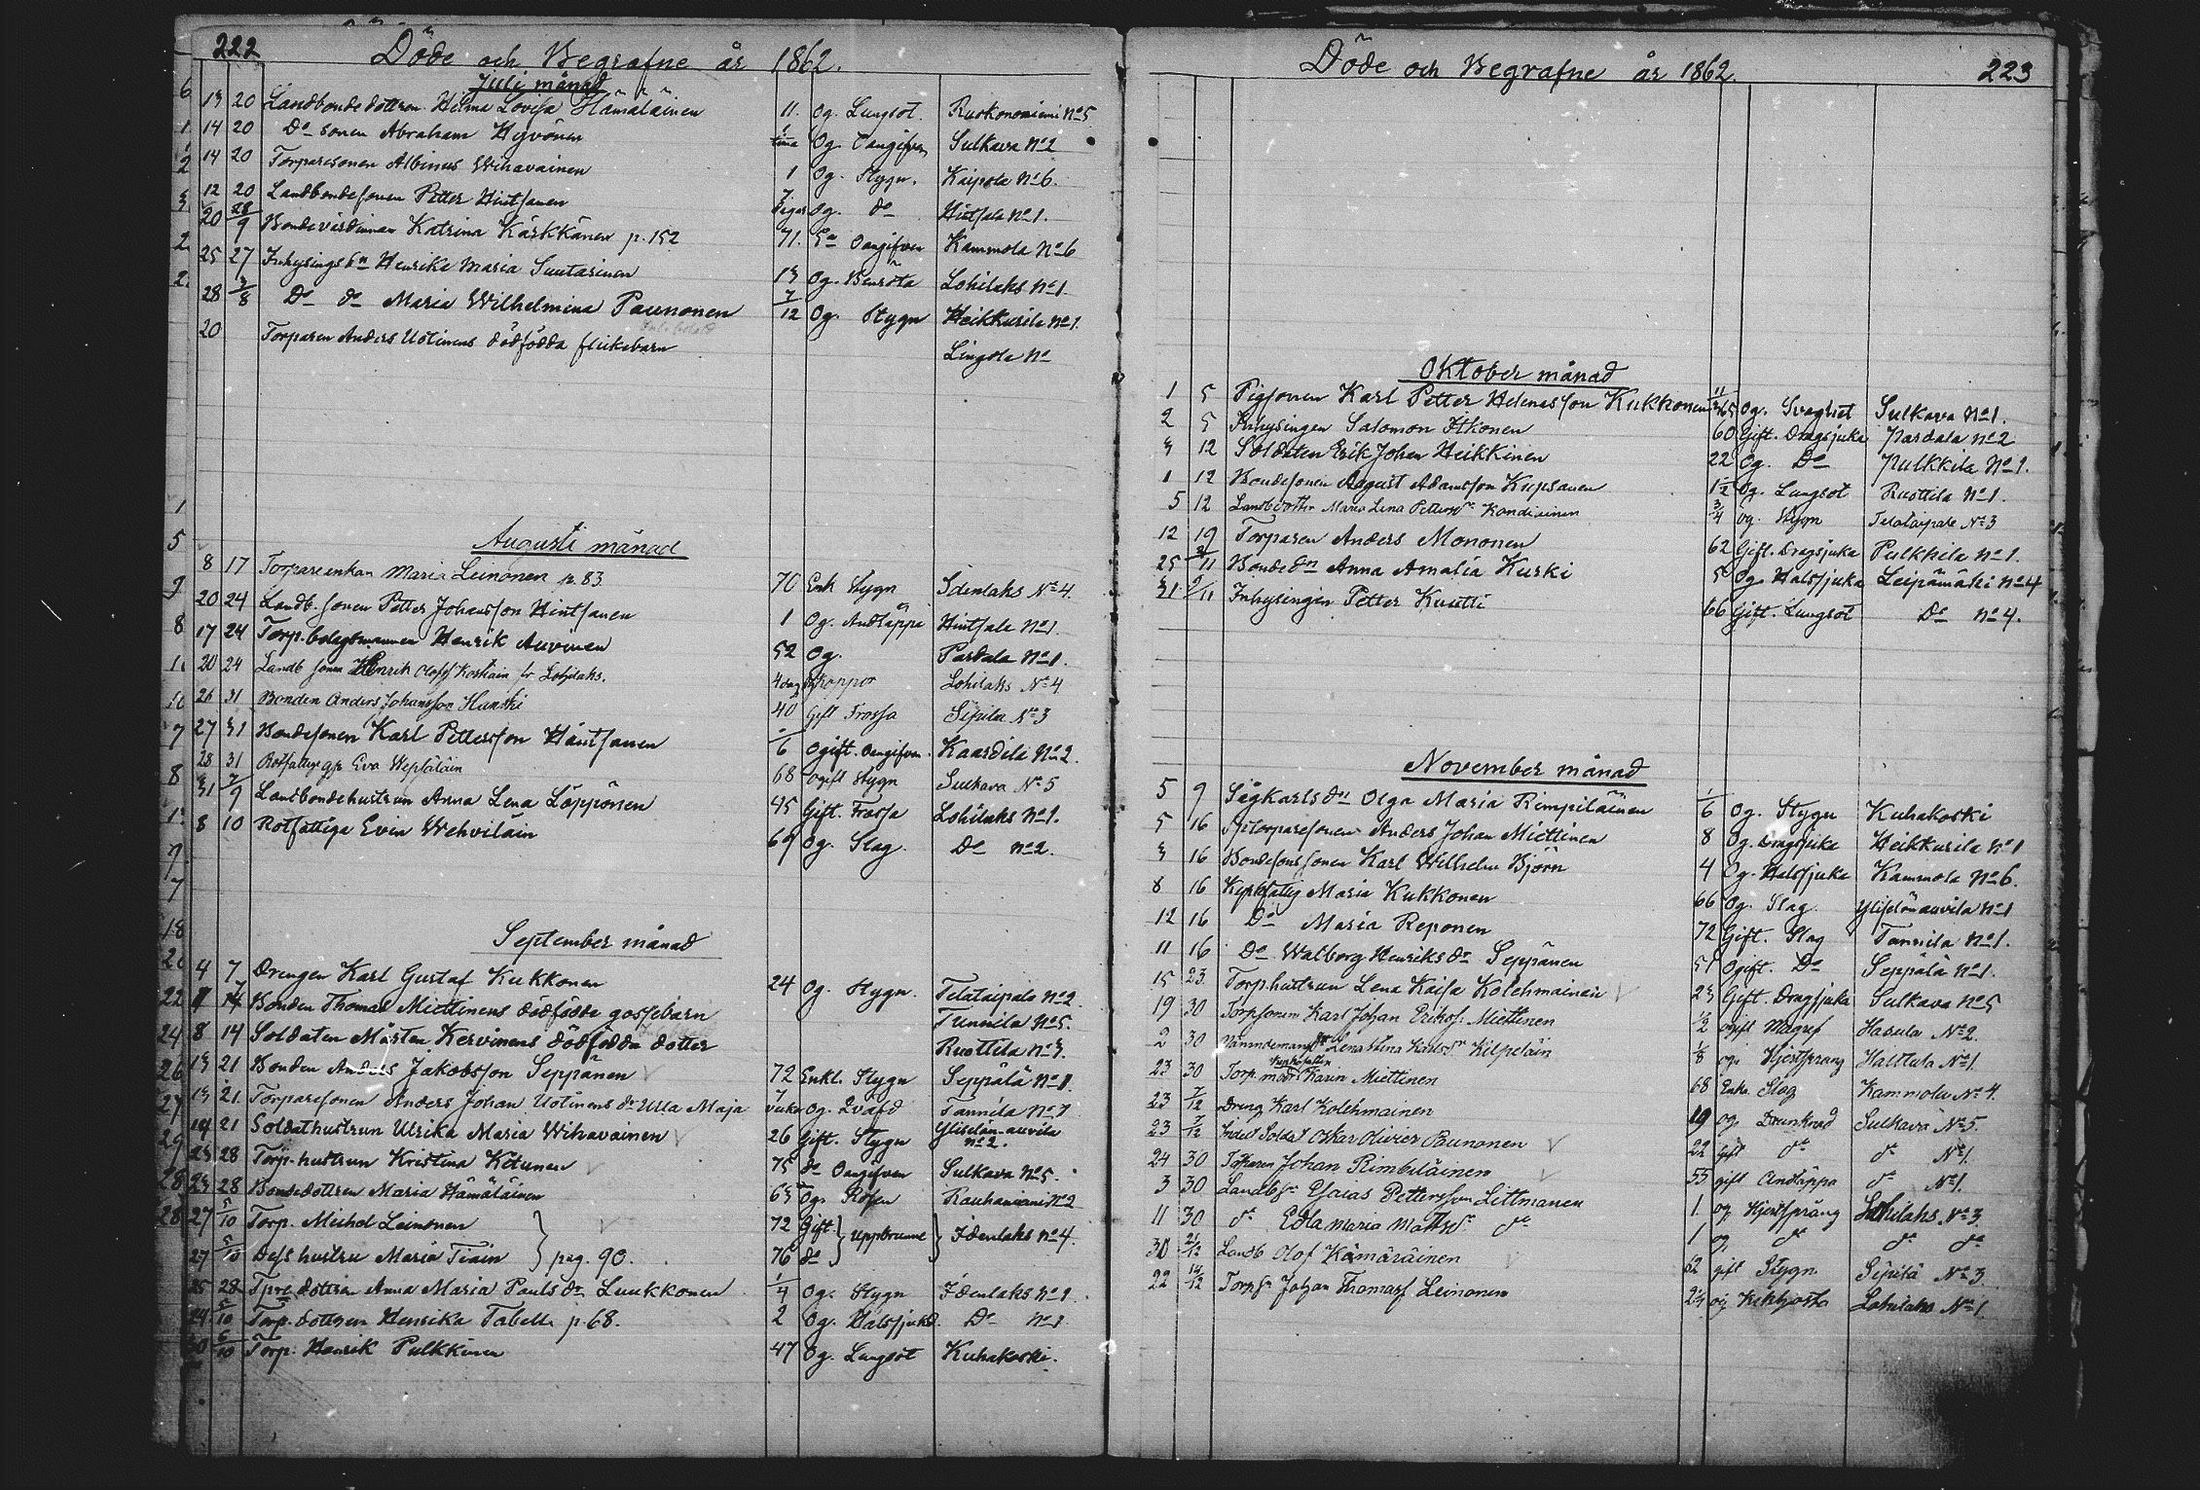 222
Döde och Begrafne år 1862.
Julij månad
13 20 Landbondedottren Hilma Lovisa Hämäläinen 11. Og. Lungsot. Ruokoniemi No 5
14 20 Do sonen Abraham Hyvönen 1 tima Og. Oangifven Sulkava No 2
14 20 Torparesonen Albinus Wihavainen 1 Og. Stygn. Kaipola No 6.
12 20 Landbondesonen Petter Hintsanen 7 dagar Og. do Hintsala No 1.
20 28/9 Bondevärdinnan Katrina Kärkkänen p. 152 71. Oangifven Kammola No 6
25 27 Inhysings dn Henrika Maria Suutarinen 13 Og. Benröta Lohilaks No 1
28 3/8 Do do Maria Wilhelmina Paunonen 7/12 Og. Stygn Heikkurila No 1.
20 Torparen Anders Uotinens dödfödda flickebarn Lingola No
Augusti månad
8 17 Torpareenkan Maria Leinonen p. 83 70 Enk Stygn Idenlaks No 4.
20 24 Landb. sonen Petter Johansson Hintsanen 1 Og. Andtäppa Hintsala No 1.
17 24 Torp. bolagsmannen Henrik Auvinen 52 Og. Partala No 1.
20 24 Landb sonen Henrik Olofss Koskain fr Lohilaks. 4 dag Og Koppor Lohilaks No 4
26 31 Bonden Anders Johansson Hanski 40 Gift Frossa Sipilä No 3
27 31 Bondesonen Karl Pettersson Häntsanen /6 Ogift. Oangifven. Kaartila No 2.
28 31 Rotfattige gp Eva Wepsäläin 68 Ogift Stygn Sulkava No 5
31 7/9 Landbondehustrun Anna Lena Löppönen 45 Gift. Frossa Lohilaks No 1.
8 10 Rotfattiga Evin Wehviläin 69 Og. Slag. Do No 2.
September månad
4 7 Drengen Karl Gustaf Kukkonen 24 Og. Stygn. Telataipale No 2
14 Bonden Thomas Miettinens dödfödde gossebarn Tunnila No 5.
8 14 Soldaten Mårten Kervinens dödfödda dotter Ruottila No 3.
13 21 Bonden Anders Jakobsson Seppänen 72 Enkl. Stygn Seppälä No 1.
13 21 Torparesonen Anders Johan Uotinens dr Ulla Maja 7 veckor Og. Qvafd Tannila No 7
14 21 Soldathustrun Ulrika Maria Wihavainen 26 Gift. Stygn Yliselän-auvila No 2.
23 28 Torp. hustrun Kristina Ketunen 75 do Oangifven Sulkava No 5.
23 28 Bondedottren Maria Hämäläinen 63 Og. Rosen Rauhaniemi No 2
27 5/10 Torp. Michel Leinonen 72 Gift Uppbrunne Idenlaks No 4.
27 5/10 Dess hustru Maria Tiain pag. 90. 76 do
25 28 Tpredottren Anna Maria Pauls dr Luukkonen 1/4 Og. Stygn Idenlaks No 1
24 5/10 Torp. dottren Henrika Tabell p. 68. 2 Og. Halssjukd. Do No 1
30 5/10 Torp. Henrik Pulkkinen 47 Og. Lungsot Kuhakoski.
Döde och Begrafne år 1862. 223
Oktober månad
1 5 Pigsonen Karl Petter Helenasson Kukkonen Og. Svaghet Sulkava No 1.
2 5 Inhysingen Salomon Itkonen 60 Gift. Dragsjuka Partala No 2
3 12 Soldaten Erik Johan Heikkinen 22 Og. Do Pulkkila No 1.
1 12 Bondesonen August Adamsson Kupsanen 1 1/2 Og. Lungsot Ruottila No 1.
5 12 Landb dotter Maria Lena Petters dr Kondiainen 3/4 Og. Stygn Telataipale No 3
12 19 Torparen Anders Mononen 62 Gift. Dragsjuka Pulkkila No 1.
25 2/11 Bonde dn Anna Amalia Kurki 5 Og. Halssjuka Leipämäki No 4
31 9/11 Inhysingen Petter Kuutti 66 Gift. Lungsot Do No 4.
November månad
5 9 Sågkarls dn Olga Maria Rimpiläinen 1/6 Og. Stygn Kuhakoski
5 16 Torparesonen Anders Johan Miettinen 8 Og. Dragsjuka Heikkurila No 1
3 16 Bondesons sonen Karl Wilhelm Björn 4 Og. Halssjuka Kammola No 6.
8 16 Kyrkfattig Maria Kukkonen 66 Og. Slag. Yliselänauvila No 1
12 16 Do Maria Reponen 72 Gift. Slag Tannila No 1.
11 16 Do Walborg Henriks dr Seppänen 51 Ogift. Do Seppälä No 1.
15 23 Torp.hustrun Lena Kaisa Kolehmainen 23 Gift. Dragsjuka Sulkava No 5
19 30 Torpsonen Karl Johan Eriks. Miettinen 1/2 ogift Magref Hasula No 2.
2 30 Nämndemans dr Lena Stina Karlsdr Kilpeläin 1/8 og. Hjertsprang Halttula No 1.
23 30 Torp. mod. Karin Miettinen 68 Enka Slag Kammola No 4.
23 7/12 Dreng Karl Kolehmainen 19 og Drunknad Sulkava No 5.
23 7/12 Indel Soldat Oskar Olivier Paunonen 22 gift do do No 1.
24 30 Torparen Johan Rimbiläinen 55 gift Andtäppa do No 1.
3 30 Landb sn Esaias Pettersson Littmanen 1 og Hjertspräng Lohilaks No 3.
11 30 do Edla Maria Mattsdr do 1 og do do do
30 21/12 Landb Olof Kämäräinen 62 gift Stygn. Sipilä No 3.
22 14/12 Torp sn Johan Thomass Leinonen og Kikhosta Lohilaks No 1